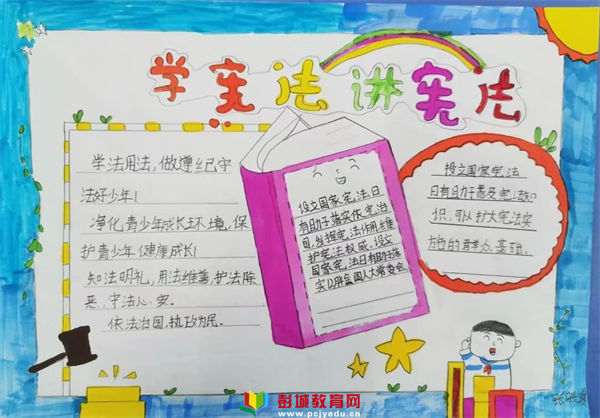 学宪法 讲宪法
学法用法，做遵纪守
法好少年！
净化青少年成长环境，保
护青少年健康成长！
知法明礼，用法维善，护法除
恶，守法心安。
依法治国，执政为民。
设立国家宪法日
有助于落实依宪治
国，发挥宪法作用，维
护宪法权威。设立
国家宪法日有助于落
实
全国人大常委会。
设立国家宪法
日有助于普及宪法知
识，可以扩大宪法实
施的群众基础。
彭城教育网
www.pcjyedu.cn